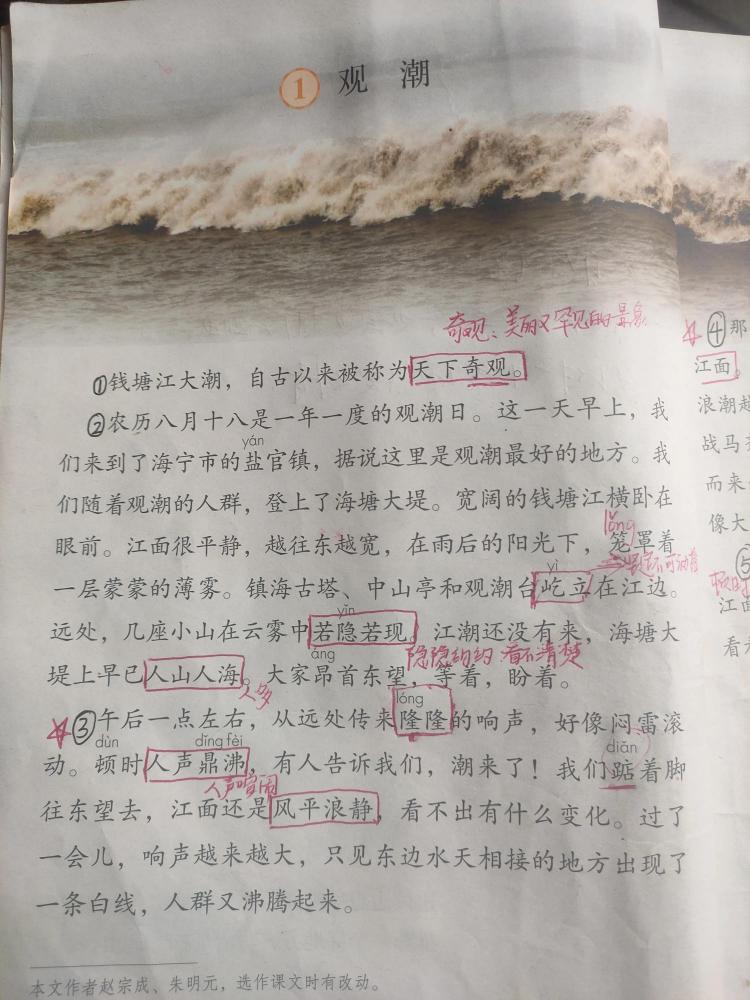 1 观潮
奇观：美丽又罕见的景象
①钱塘江大潮，自古以来被称为天下奇观。
②农历八月十八是一年一度的观潮日。这一天早上，我
yán
们来到了海宁市的盐官镇，据说这里是观潮最好的地方。我
们随着观潮的人群，登上了海塘大堤。宽阔的钱塘江横卧在
lǒng
眼前。江面很平静，越往东越宽，在雨后的阳光下，笼罩着
yì
一层蒙蒙的薄雾。镇海古塔、中山亭和观潮台屹立在江边。
yǐn
远处，几座小山在云雾中若隐若现。江潮还没有来，海塘大
áng 隐隐约约 看不清楚
堤上早已人山人海。大家昂首东望，等着，盼着。
人多
lóng
③午后一点左右，从远处传来隆隆的响声，好像闷雷滚
dùn dǐng fèi diǎn
动。顿时人声鼎沸，有人告诉我们，潮来了！我们踮着脚
人声喧闹
往东望去，江面还是风平浪静，看不出有什么变化。过了
一会儿，响声越来越大，只见东边水天相接的地方出现了
一条白线，人群又沸腾起来。
本文作者赵宗成、朱明元，选作课文时有改动。
④那
江面
浪潮越
战马
而来
像大
⑤
顿时
江面
看